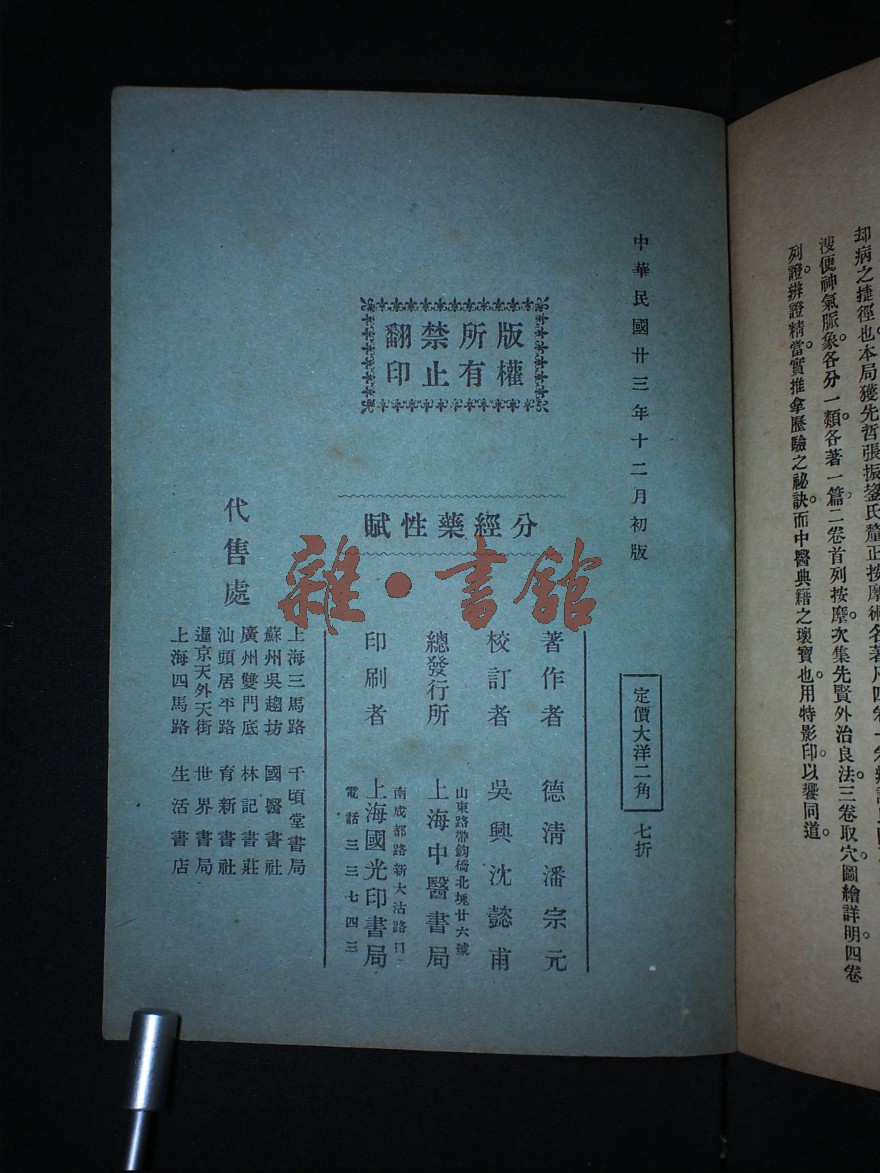 却病之捷徑也本局獲先哲張振鋆氏釐正按摩術名著凡四卷一卷辨證
溲便神氣脈象各分一類。各著一篇。二卷首列按摩。次集先賢外治良法。三卷取穴。圖繪詳明。四卷
列證。辨證精當。實推拿歷驗之祕訣。而中醫典籍之瓌寶也。用特影印以饗同道。
中華民國廿三年十二月初版
定價大洋二角 七折
版權
所有
禁止
翻印
分經藥性賦
著作者 德清潘宗元
校訂者 吳興沈懿甫
總發行所 山東路帶鈎橋北堍廿六號
上海中醫書局
印刷者 南成都路新大沽路口
上海國光印書局
電話三三七四三
代售處
上海三馬路 千頃堂書局
蘇州吳趨坊 國醫書社
廣州雙門底 林記書莊
汕頭居平路 育新書社
暹京天外天街 世界書局
上海四馬路 生活書店
雜·書館